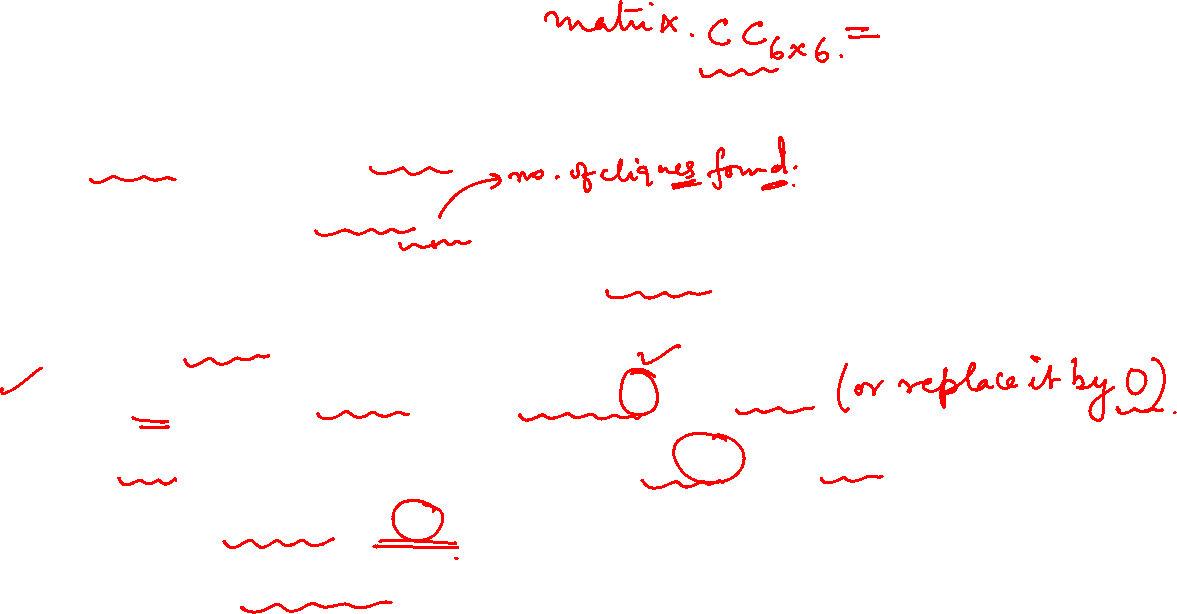 matrix. CC6x6. =
no. of cliques found.
(or replace it by 0).